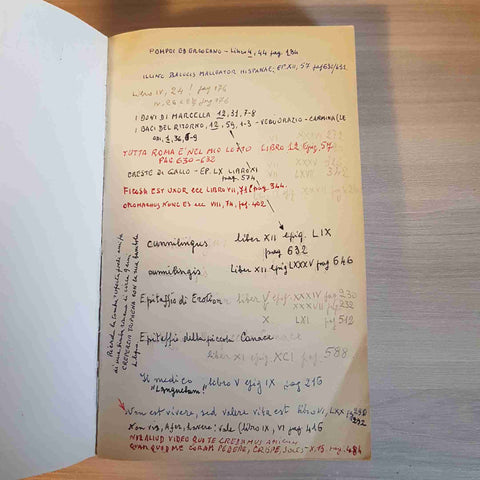 POMPEI ED ERCOLANO - Libro 4, 44 pag 184
ILLINC BALUCIS MALLEATOR HISPANAE; EP. XII, 57 pag 631/632
Libro IV, 24 ! pag 176
IV, 25 pag 176
I DONI DI MARCELLA 12, 31, 7-8
I BACI DEL RITORNO, 12, 59, 1-3 - VEDI ORAZIO - CARMINA (LE
ODI, 36, 6-9
TUTTA ROMA E' NEL MIO LETTO LIBRO 12 Epig. 57
PAG. 630-632
CRESTE DI GALLO - EP. LX LIBRO XI
pag. 574
FICOSA EST UXOR ecc LIBRO VII, 71 pag 344.
OPLOMACHUS NUNC ES ecc VIII, 74, pag. 402
cunnilingus liber XII epig. LIX
pag 632
cunnilingis liber XII epig LXXXV pag 646
Epitaffio di Erotion liber V epig. XXXIV pag 230
V XXXVII pag 232
X LXI pag 512
Epitaffio della piccola Canace
liber XI epig. XCI pag. 588
Il medico libro V epig IX pag 216
"Languebam"
Non est vivere, sed valere vita est libro VI, LXX pag 290
292
Non vis, Afer, havere: vale (libro IX, VI pag 416
NON ALIUD VIDEO QUO TE CREDAMUS AMICUM
QUAM QUOD ME CORAM PEDERE, CRISPE, SOLES - X, 15 pag. 484
Ricorda la tomba
CREPEREIA TRYPHAENA con la sua bambola